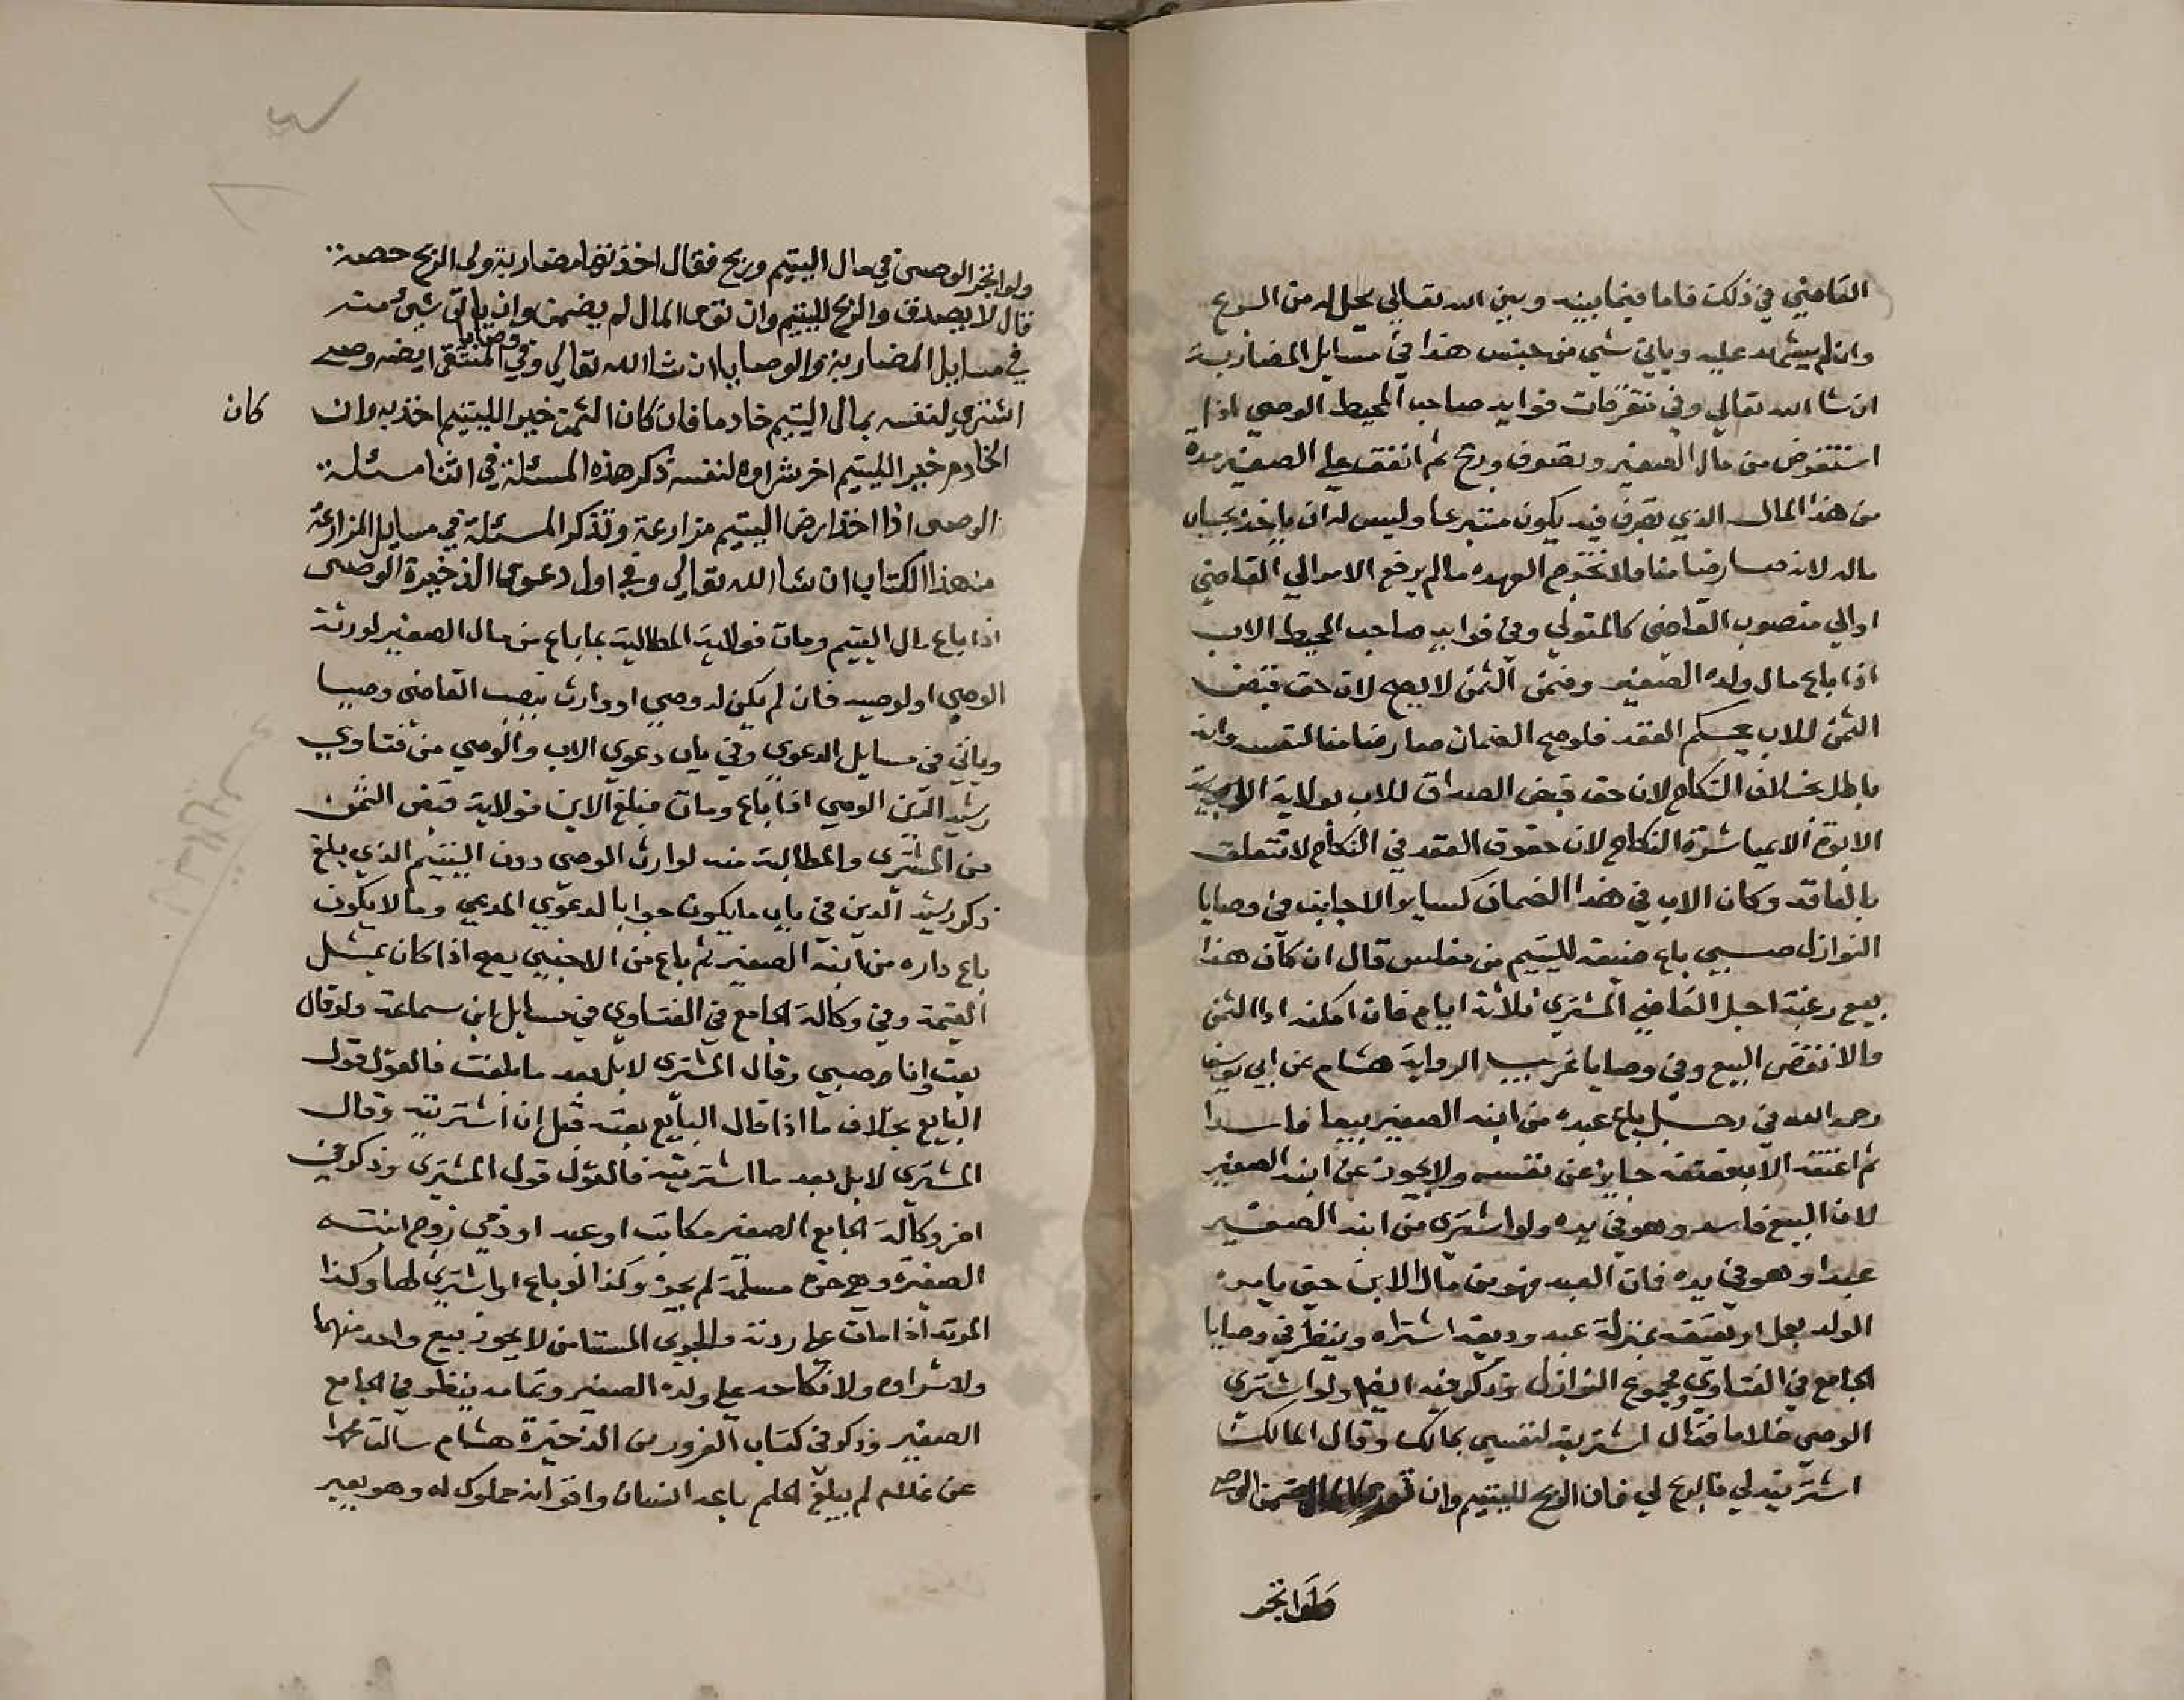 القاضي في ذلك فاما فيما بينه وبين الله تعالى يحل له من الربح
وان لم يشهد عليه وياتي شي من جنس هذا في مسايل المضاربة
ان شا الله تعالي وفي متفرقات فوايد صاحب المحيط الوصي اذا
استقرض من مال الصغير وتصرف وربح ثم انفق علي الصغير مدة
من هذا المال الذي تصرف فيه يكون متبرعا وليس له ان ياخذ بحساب
ماله لانه صار ضامنا فلا تخرج العهده مالم يرفع الامر الي القاضي
او الي منصوب القاضي كالمتولي وفي فوايد صاحب المحيط الاب
اذا باع مال ولده الصغير وضمن الثمن لا يصح لان حق قبض
الثمن للاب بحكم العقد فلو صح الضمان صار ضامنا لنفسه وانه
باطل بخلاف النكاح لان حق قبض الصداق للاب بولاية
الابوة لا بمباشرة النكاح لان حقوق العقد في النكاح لا تتعلق
بالعاقد وكان الاب في هذا الضمان كساير الاجانب في وصايا
النوازل صبي باع ضيعة لليتيم من مفلس قال ان كان هذا
بيع رغبة اجل القاضي المشتري ثلاثة ايام فان امكنه ادا الثمن
والا نقض البيع وفي وصايا غريب الرواية هشام عن ابي يوسف
رحمه الله في رجل باع عبده من ابنه الصغير بيعا فاسدا
ثم اعتقه الاب فعتقه جايز عن نفسه ولا يجوز عن ابنه الصغير
لان البيع فاسد وهو في يده ولو اشترى من ابنه الصغير
عبدا وهو في يده فان العبد فهو من مال الابن حتى يامره
الولد بعمل او يعتقه بمنزلة عبد وديعة اشتراه وينظر في وصايا
الجامع في الفتاوي ومجموع النوازل وذكر فيه ايضا ولو اشتري
الوصي غلاما فقال اشتريته لنفسي بمالك وقال المالك
اشتريته لي فالربح لي فان الربح لليتيم وان ضمن الوصي
ولو اتجر
ولو اتجر الوصي في مال اليتيم وربح فقال اخذتها مضاربة ولي الربح حصة
قال لا يصدق والربح لليتيم وان توى المال لم يضمن وان ياتي شيء منه
في مسايل المضاربة والوصايا ان شا الله تعالي وفي وصايا المنتقى ايضه وصي
اشترى لنفسه بمال اليتيم خادما فان كان الثمن خيرا لليتيم اخذ به وان كان
الخادم خيرا لليتيم اخر شراوه لنفسه ذكر هذه المسئلة في اثنا مسئلة
الوصي اذا اخذ ارض اليتيم مزارعة وتذكر المسئلة في مسايل المزارعة
من هذا الكتاب ان شا الله تعالى وفي اول دعوى الذخيرة الوصي
اذا باع مال اليتيم ومات فولاية المطالبة بما باع من مال الصغير لورثة
الوصي او لوصيه فان لم يكن له وصي او وارث نصب القاضي وصيا
وياتي في مسايل الدعوي وفي باب دعوي الاب والوصي من فتاوي
رشيد الدين الوصي اذا باع ومات فبلغ الابن فولاية قبض الثمن
من المشتري والمطالبة منه لوارث الوصي دون اليتيم الذي بلغ
ذكر رشيد الدين في باب ما يكون جوابا لدعوي المدعي وما لا يكون
باع داره من ابنه الصغير ثم باع من الاجنبي يصح اذا كان بمثل
القيمة وفي وكالة الجامع في الفتاوي في مسايل ابن سماعة ولو قال
بعت وانا صبي وقال المشتري لا بل بعد ما بلغت فالقول قول
البايع بخلاف ما اذا قال البايع بعته قبل ان اشتريته وقال
المشتري لا بل بعد ما اشتريته فالقول قول المشتري وذكر في
اخر وكالة الجامع الصغير مكاتب او عبد او ذمي زوج ابنته
الصغيرة وهي حرة مسلمة لم يجز وكذا لو باع او اشتري لها وكذا
المرتد اذا مات علي ردته والحربي المستامن لا يجوز بيع واحد منهما
ولا شراوه ولا نكاحه علي ولده الصغير وتمامه ينظر في الجامع
الصغير وذكر في كتاب الغرور من الذخيرة هشام سالت محمدا
عن غلام لم يبلغ الحلم باعه انسان واقر انه مملوك له وهو يعبر